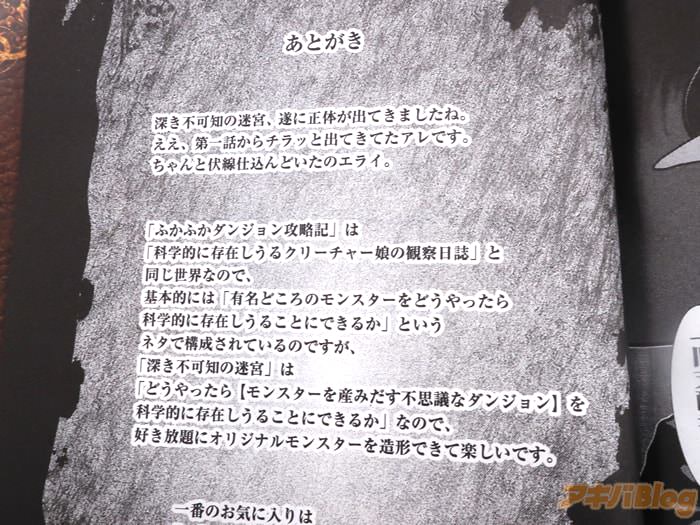 あとがき
深き不可知の迷宮、遂に正体が出てきましたね。
ええ、第一話からチラッと出てきてたアレです。
ちゃんと伏線仕込んどいたのエライ。
「ふかふかダンジョン攻略記」は
「科学的に存在しうるクリーチャー娘の観察日誌」と
同じ世界なので、
基本的には「有名どころのモンスターをどうやったら
科学的に存在しうることにできるか」という
ネタで構成されているのですが、
「深き不可知の迷宮」は
「どうやったら【モンスターを産みだす不思議なダンジョン】を
科学的に存在しうることにできるか」なので、
好き放題にオリジナルモンスターを造形できて楽しいです。
一番のお気に入りは
アキバBlog